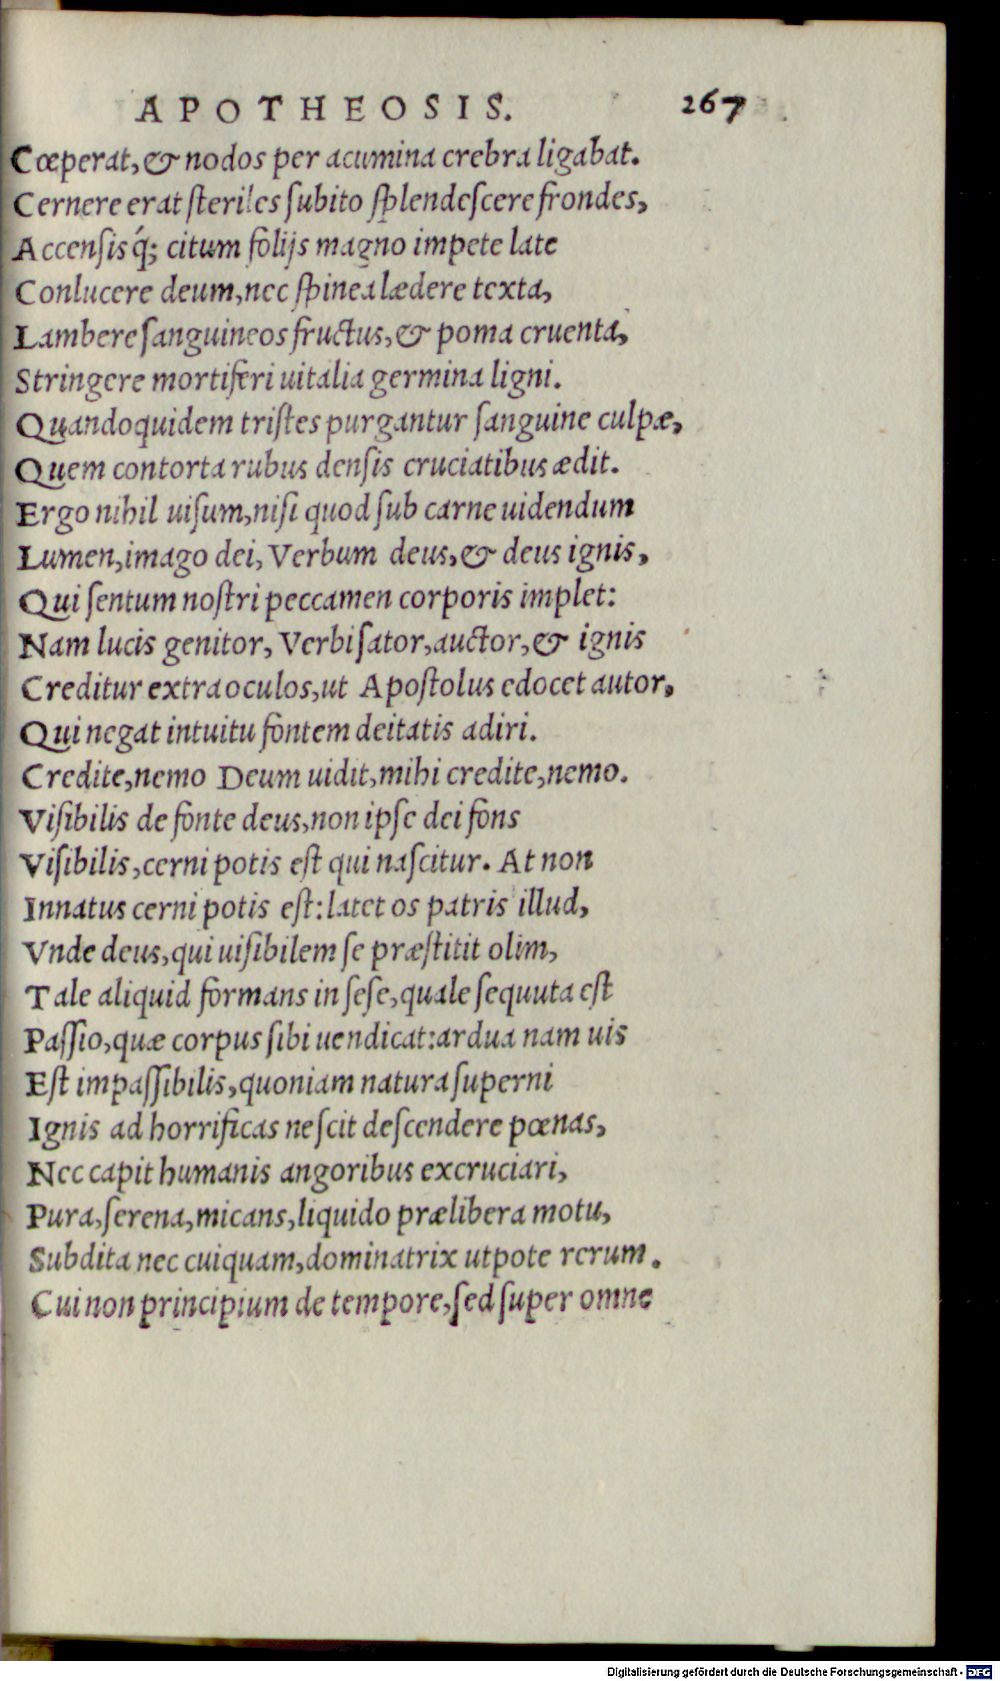 APOTHEOSIS. 267
Cœperat, & nodos per acumina crebra ligabat.
Cernere erat ſteriles ſubito ſplendeſcere frondes,
Accenſisq́; citum folijs magno impete late
Conlucere deum, nec ſpinea lædere texta,
Lambere ſanguineos fructus, & poma cruenta,
Stringere mortiferi uitalia germina ligni.
Quandoquidem triſtes purgantur ſanguine culpæ,
Quem contorta rubus denſis cruciatibus ædit.
Ergo nihil uiſum, niſi quod ſub carne uidendum
Lumen, imago dei, Verbum deus, & deus ignis,
Qui ſentum noſtri peccamen corporis implet:
Nam lucis genitor, Verbi ſator, auctor, & ignis
Creditur extra oculos, ut Apoſtolus edocet autor,
Qui negat intuitu fontem deitatis adiri.
Credite, nemo Deum uidit, mihi credite, nemo.
Viſibilis de fonte deus, non ipſe dei fons
Viſibilis, cerni potis eſt qui naſcitur. At non
Innatus cerni potis eſt: latet os patris illud,
Vnde deus, qui uiſibilem ſe præſtitit olim,
Tale aliquid formans in ſeſe, quale ſequuta eſt
Paſſio, quæ corpus ſibi uendicat: ardua nam uis
Eſt impaſſibilis, quoniam natura ſuperni
Ignis ad horrificas neſcit deſcendere pœnas,
Nec capit humanis angoribus excruciari,
Pura, ſerena, micans, liquido prælibera motu,
Subdita nec cuiquam, dominatrix utpote rerum.
Cui non principium de tempore, ſed ſuper omne
Digitalisierung gefördert durch die Deutsche Forschungsgemeinschaft - DFG